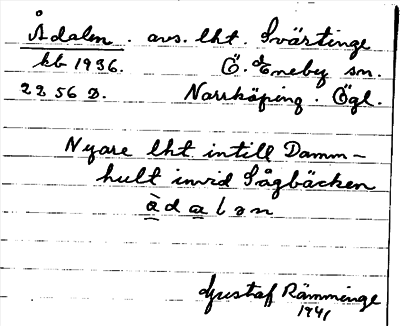 Ådalen. avs. lht. Svärtinge
kb 1936. Ö. Eneby sn.
2256 D. Norrköping. Ögl.
Nyare lht intill Damm-
hult invid Sågbäcken
àdalən
Gustaf Rämminge
1941